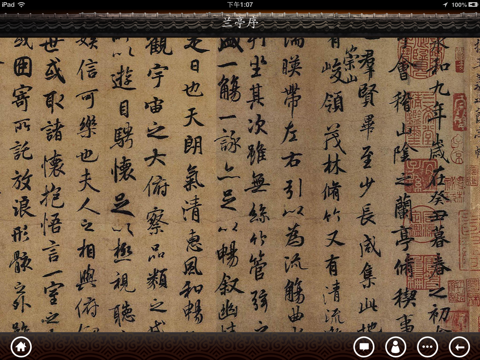 iPad 下午1:07 100%
兰亭序
永和九年歲在癸丑暮春之初
會稽山陰之蘭亭脩稧事
群賢畢至少長咸集此地
崇山
有峻領茂林脩竹又有清流
湍暎帶左右引以為流觴曲
列坐其次雖無絲竹管弦之
盛一觴一詠亦足以暢敘幽情
是日也天朗氣清惠風和暢
觀宇宙之大俯察品類之
以遊目騁懷足以極視聽
娛信可樂也夫人之相與俯
世或取諸懷抱悟言一室之
因寄所託放浪形骸之外雖